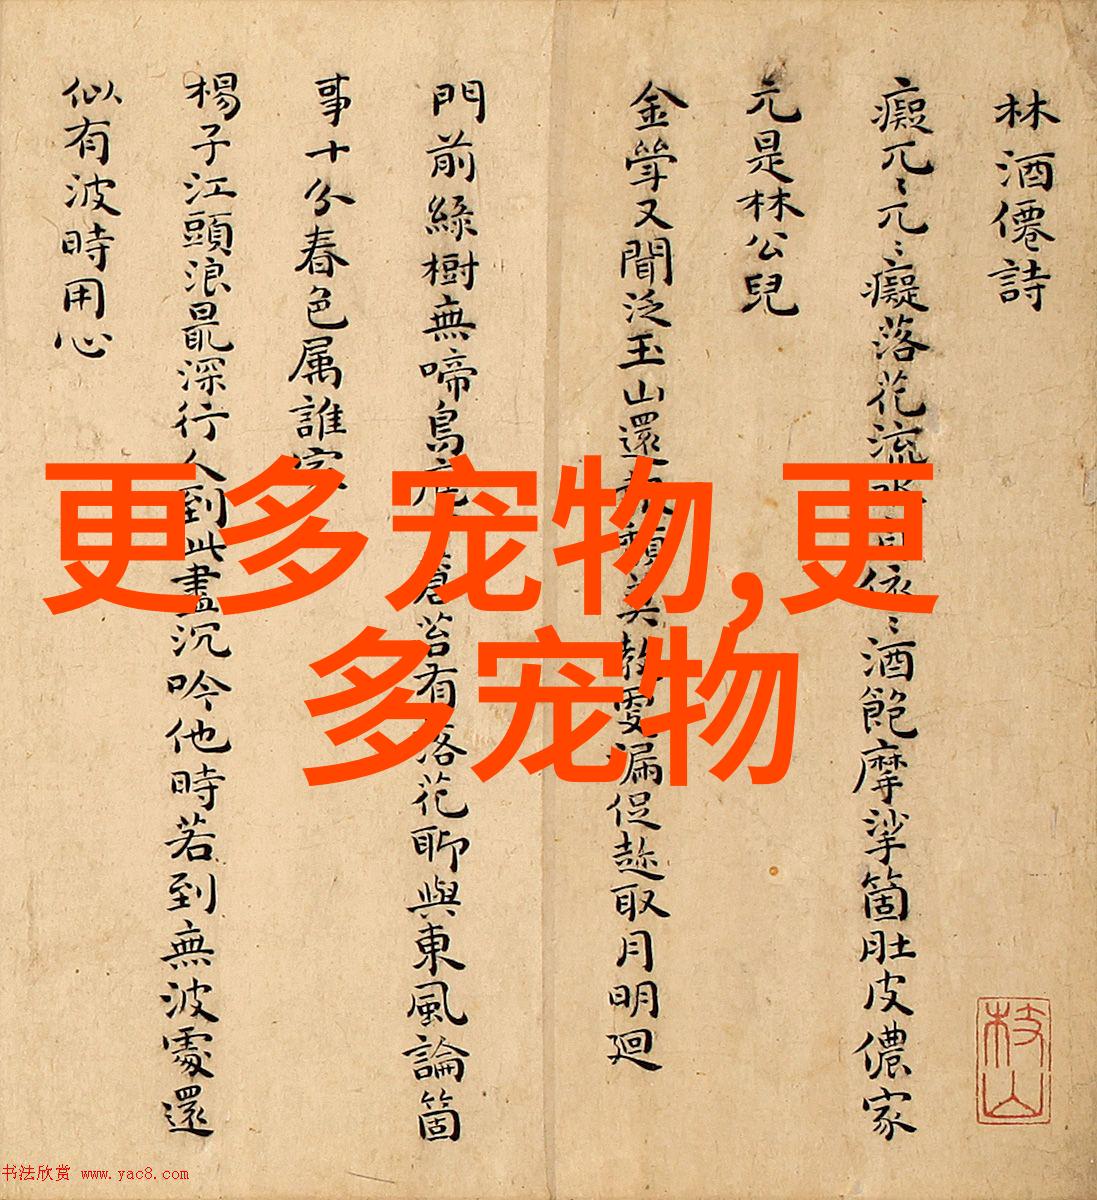 更多宠物,更
多宠物
林酒僊詩
癡兀〻兀〻癡落花流依〻酒飽摩挲箇肚皮儂家
元是林公兒
金斝又聞泛玉山還頹莫教更漏促趂取月明廻
門前綠樹無啼鳥庭蒼苔有落花聊與東風論箇
事十分春色属誰家
楊子江頭浪最深行人到此盡沉吟他時若到無波處還
似有波時用心
枝山
书法欣赏 www.yac8.com